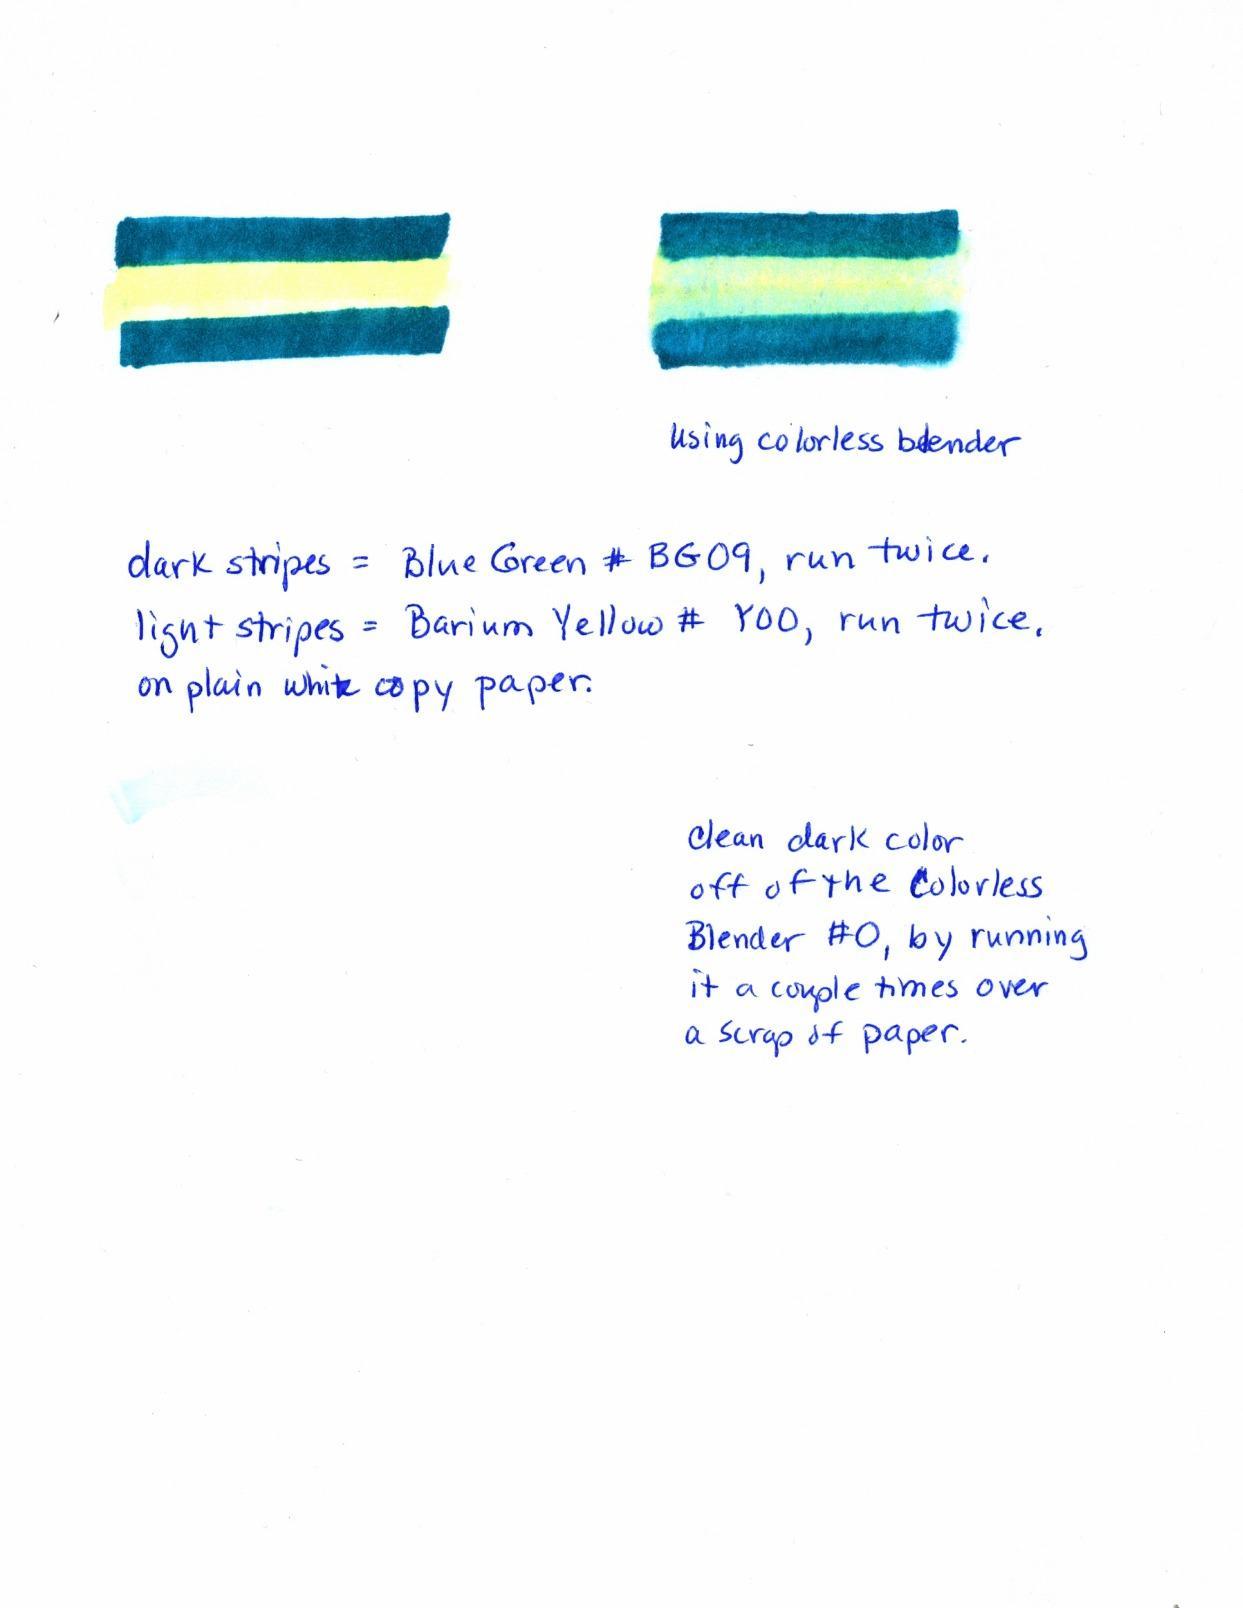 using colorless blender
dark stripes = Blue Green # BG09, run twice.
light stripes = Barium Yellow # Y00, run twice.
on plain white copy paper.
Clean dark color
off of the Colorless
Blender #0, by running
it a couple times over
a scrap of paper.